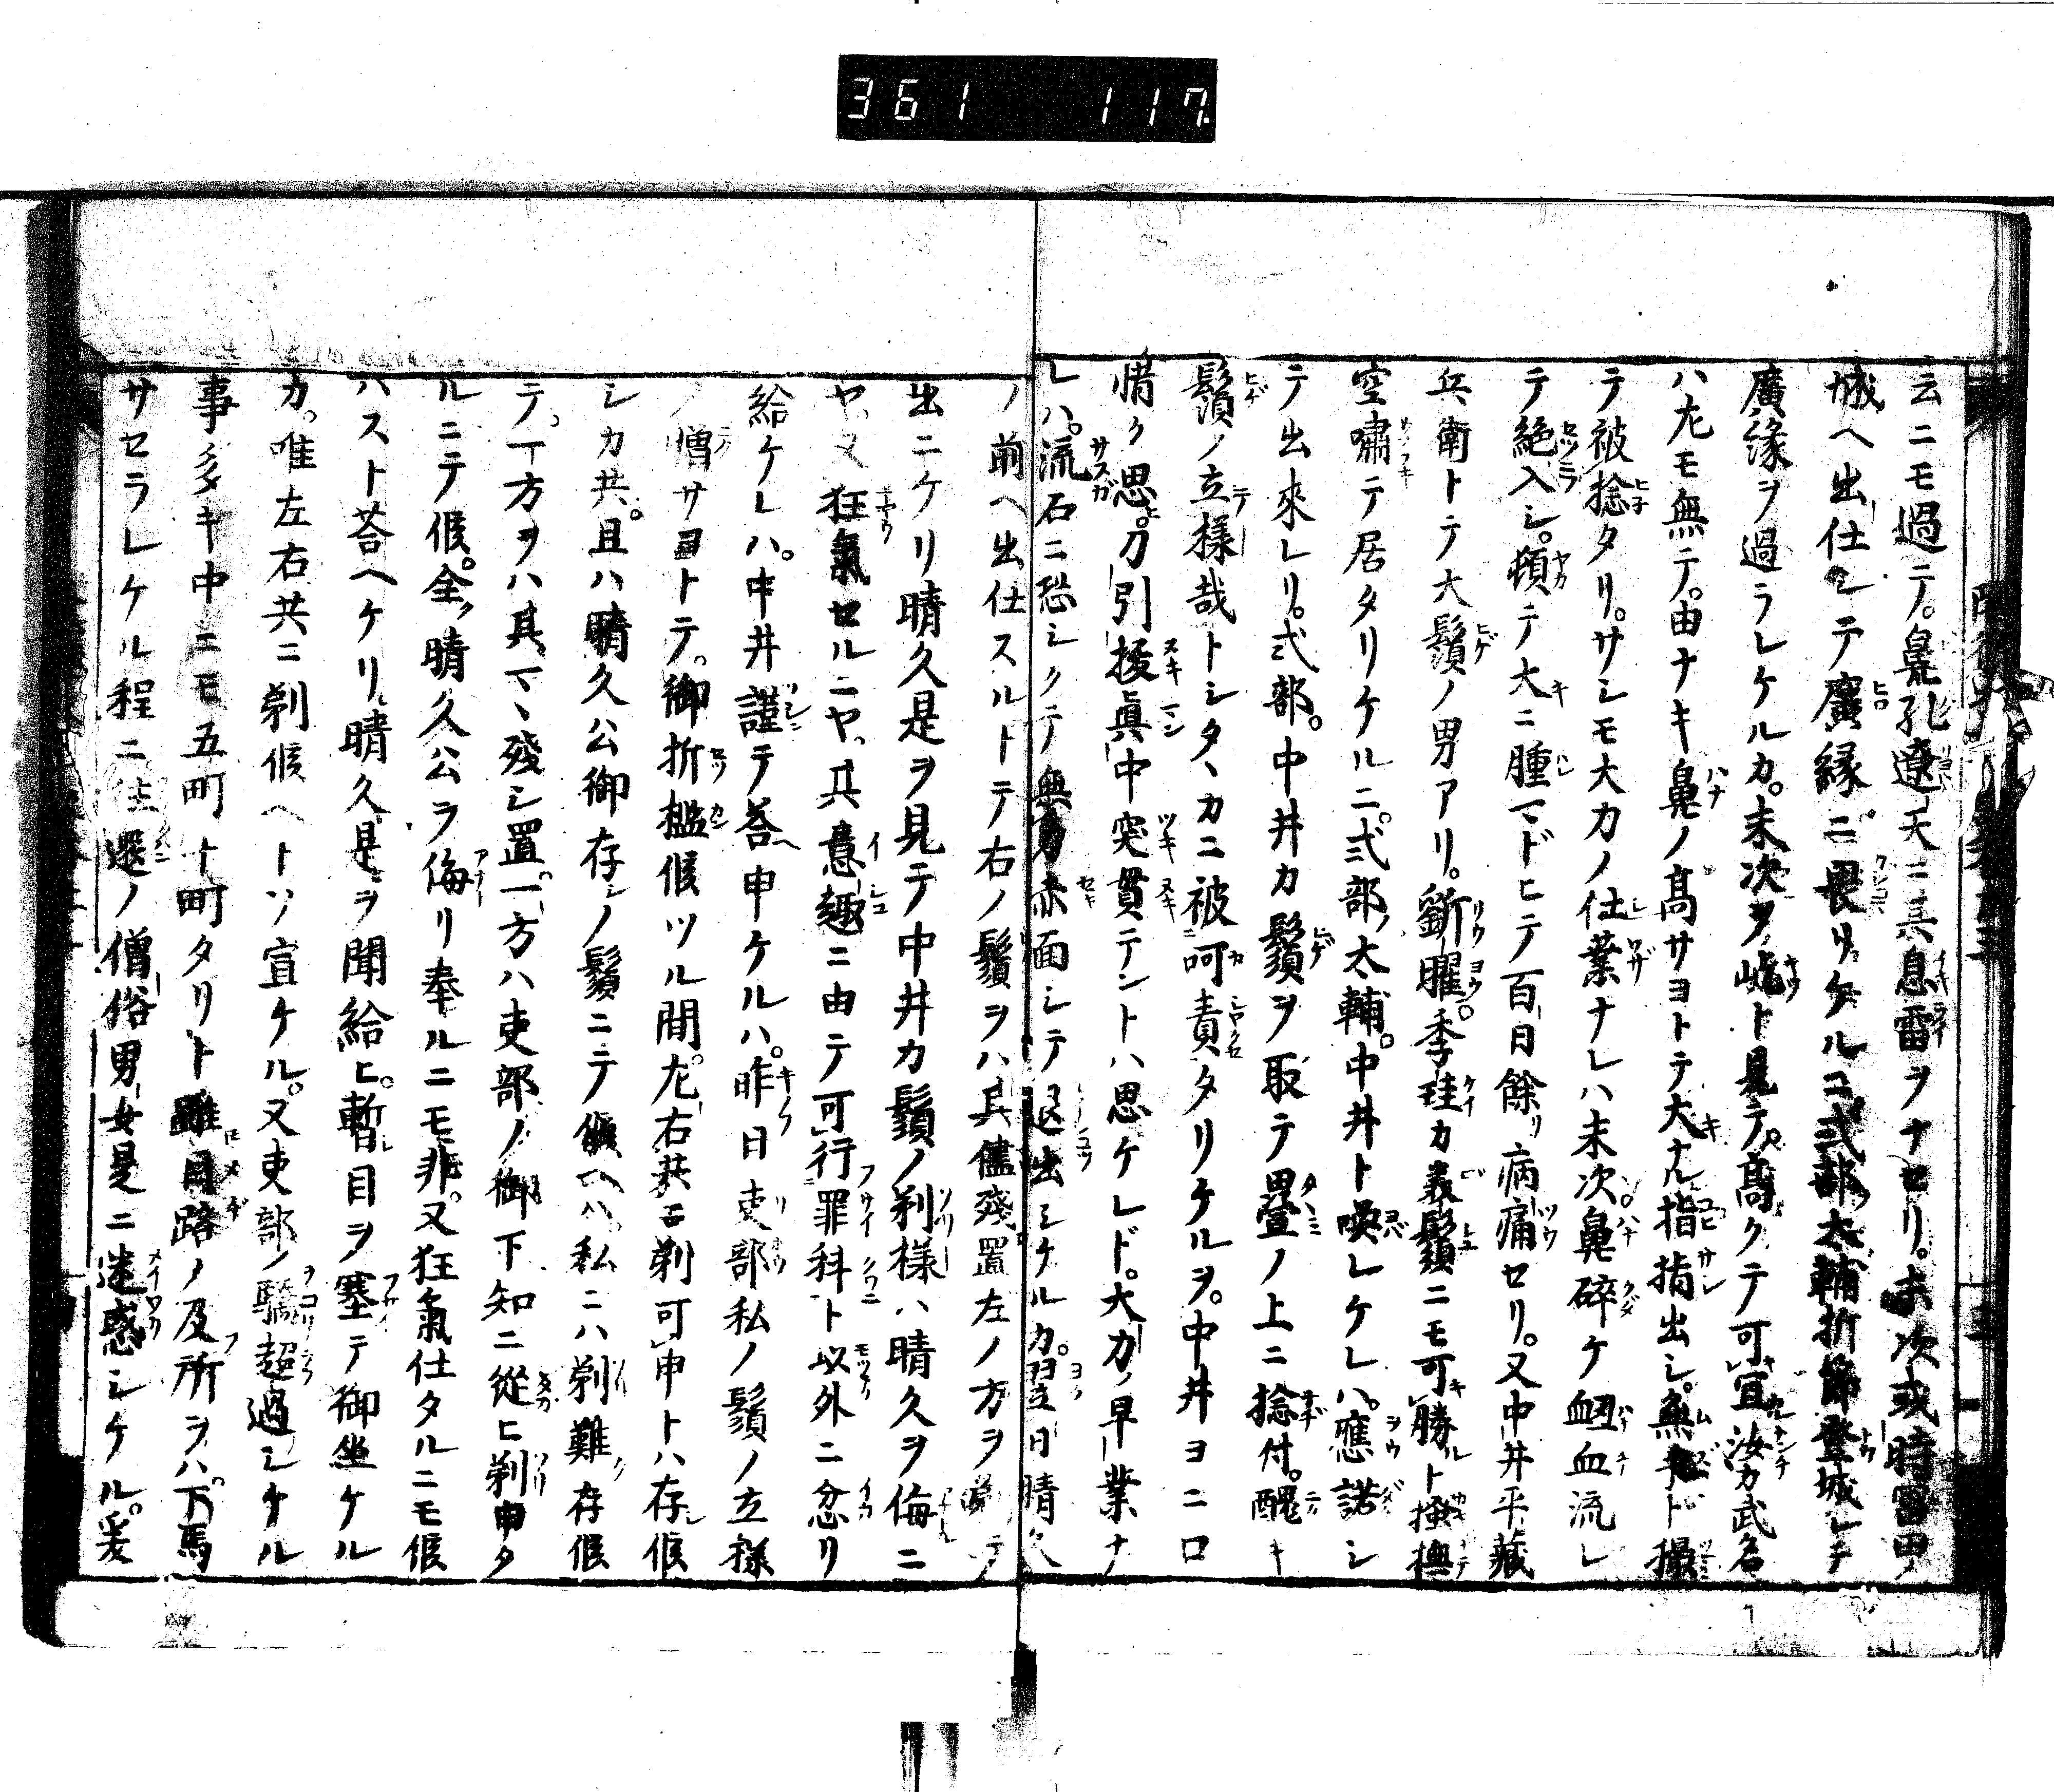 361 117
云ニモ過テ。鼻孔遼天ニ其息雷ヲナセリ。末次或時冨田
城ヘ出仕シテ廣縁ニ畏リケルニ式部太輔折節登城シテ
廣縁ヲ過ラレケルカ。末次ヲ屹ト見テ。高クテ可宜汝カ武名
ハ尤モ無テ。由ナキ鼻ノ高サヨトテ大ナル指指出シ。無手ト撮
テ被捻タリ。サシモ大力ノ仕業ナレハ末次鼻碎ケ衂血流レ
テ絶入シ。頓テ大ニ腫マドヒテ百日餘リ病痛セリ。又中井平藏
兵衛トテ大鬚ノ男アリ。劉曜。季珪カ美鬚ニモ可勝ト搔撫
空嘯テ居タリケルニ。式部太輔。中井ト喚レケレハ。應諾シ
テ出來レリ。式部。中井カ鬚ヲ取テ疊ノ上ニ捻付。醜キ
鬚ノ立様哉トシタヽカニ被呵責タリケルヲ。中井ヨニ口
惜ク思。刀引拔眞中突貫テントハ思ケレド。大力ノ早業ナ
レハ。流石ニ恐シクテ無力赤面シテ退出シケルカ。翌日晴久
ノ前ヘ出仕スルトテ右ノ鬚ヲハ其儘殘置左ノ方ヲ剃テ
出ニケリ晴久是ヲ見テ中井カ鬚ノ剃様ハ晴久ヲ侮ニ
ヤ。又狂氣セルニヤ。其意趣ニ由テ可行罪科ト以外ニ忿リ
給ケレハ。中井謹テ荅申ケルハ。昨日吏部私ノ鬚ノ立様
ノ憎サヨトテ。御折檻候ツル間。左右共ニ剃可申トハ存候
シカ共。且ハ晴久公御存シノ鬚ニテ候ヘハ。私ニハ剃難存候
テ。一方ヲハ其マヽ殘シ置。一方ハ吏部ノ御下知ニ從ヒ剃申タ
ルニテ候。全ク晴久公ヲ侮リ奉ルニモ非。又狂氣仕タルニモ候
ハスト荅ヘケリ。晴久是ヲ聞給ヒ。暫目ヲ塞テ御坐ケル
カ。唯左右共ニ剃候ヘトソ宣ケル。又吏部ノ驕超過シケル
事多キ中ニモ五町十町タリト雖目路ノ及所ヲハ。下馬
サセラレケル程ニ往還ノ僧俗男女是ニ迷惑シケル。爰